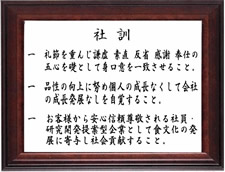 社訓
一 礼節を重んじ謙虚 素直 反省 感謝 奉仕の
五心を礎として身口意を一致させること。
一 品性の向上に努め個人の成長なくして会社
の成長発展なしを自覚すること。
一 お客様から安心信頼尊敬される社員・
研究開発提案型企業として食文化の発
展に寄与し社会貢献すること。